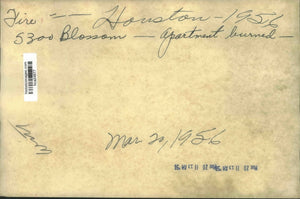 Fire -- Houston - 1956
5300 Blossom - Apartment burned -
Mar 20, 1956